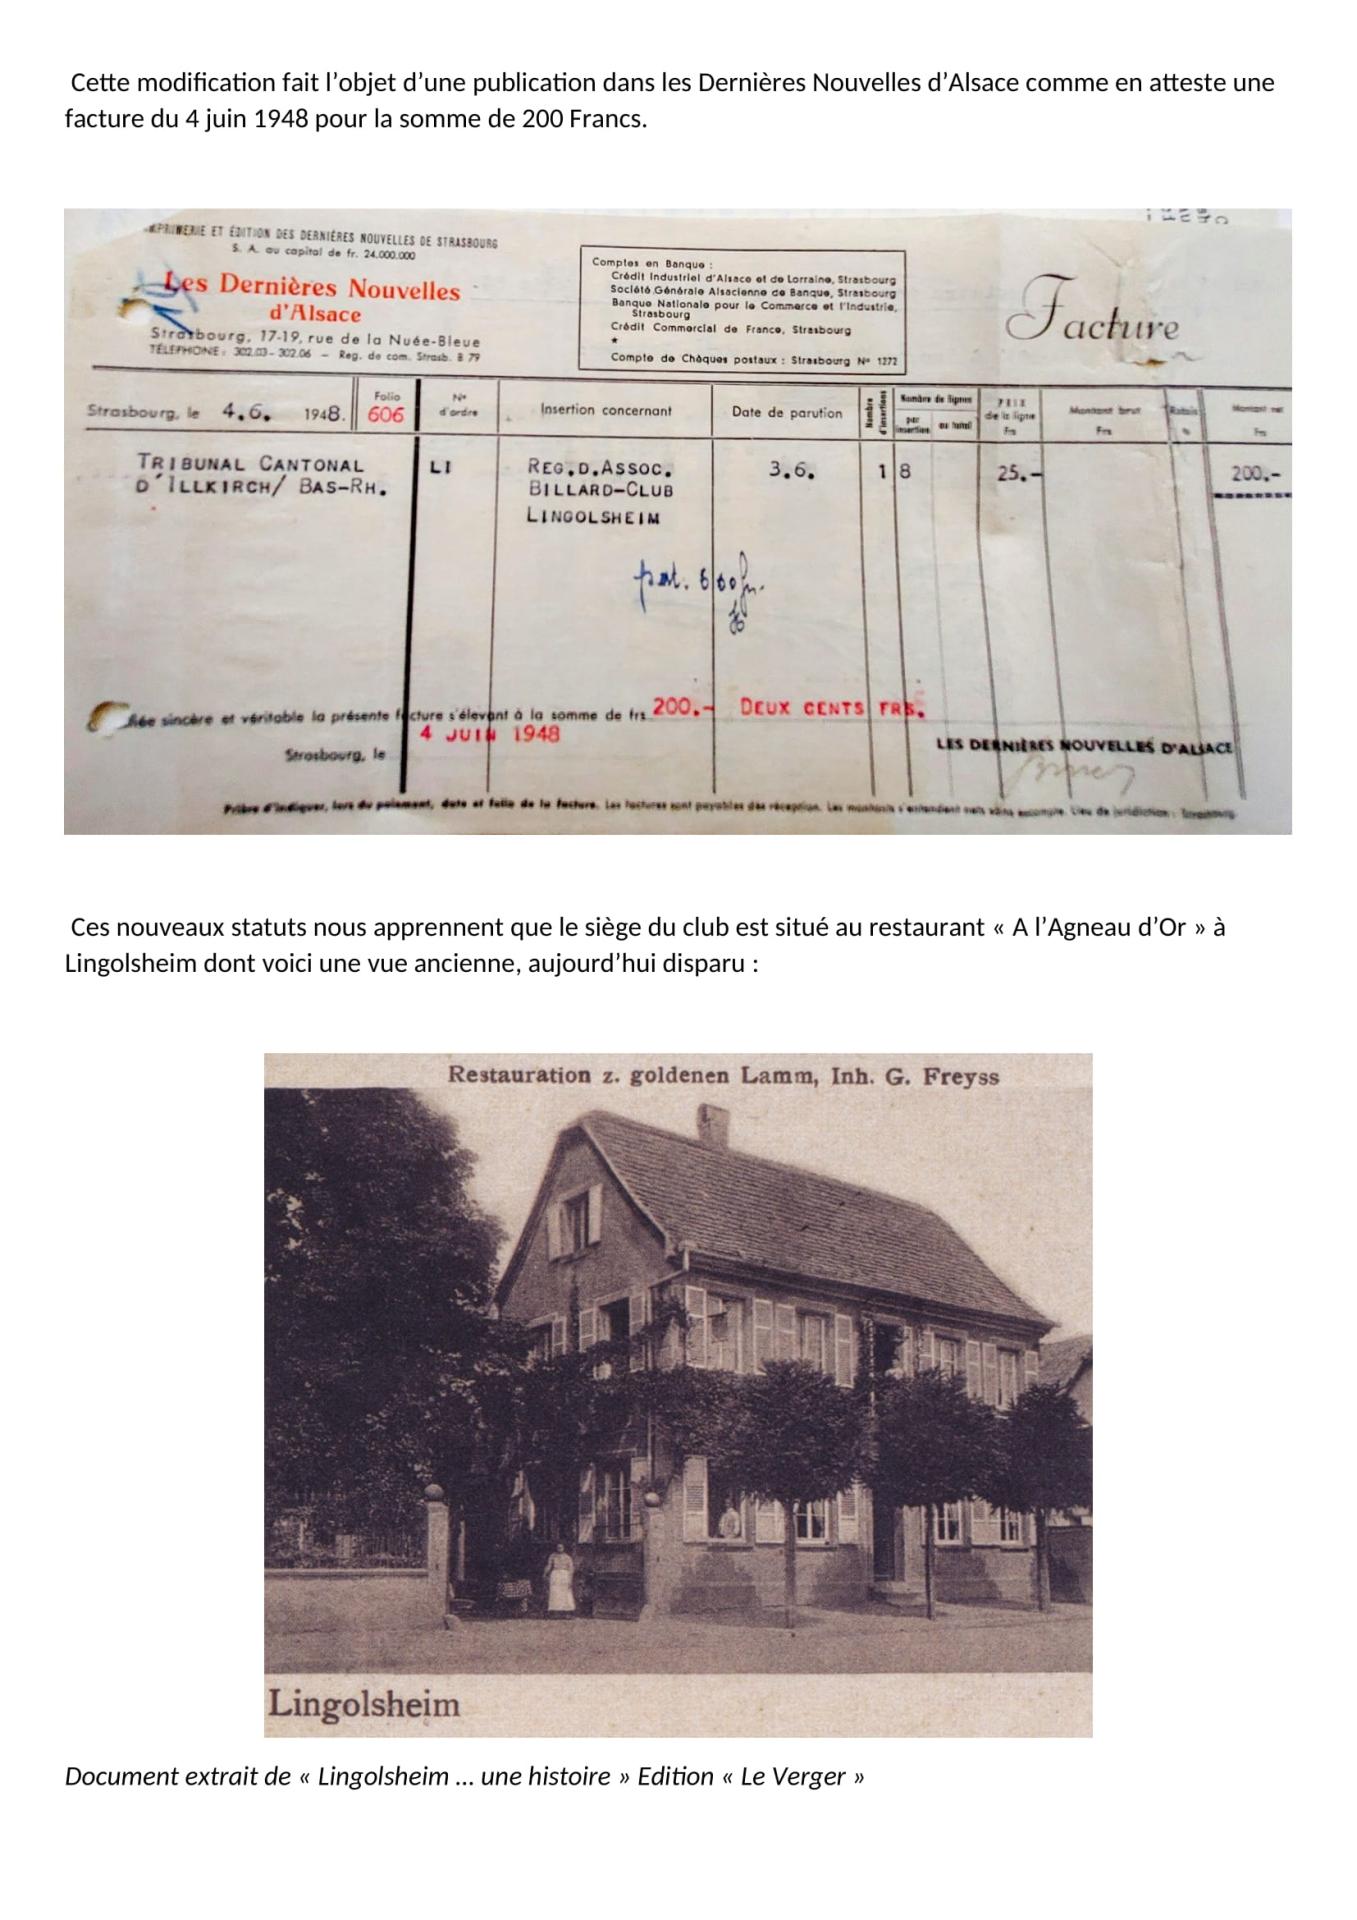 Cette modification fait l’objet d’une publication dans les Dernières Nouvelles d’Alsace comme en atteste une
facture du 4 juin 1948 pour la somme de 200 Francs.
IMPRIMERIE ET ÉDITION DES DERNIÈRES NOUVELLES DE STRASBOURG
S. A. au capital de fr. 24.000.000
Les Dernières Nouvelles
d'Alsace
Strasbourg, 17-19, rue de la Nuée-Bleue
TÉLÉPHONE : 302.03 - 302.06 – Reg. de com. Strasb. B 79
Comptes en Banque :
Crédit Industriel d'Alsace et de Lorraine, Strasbourg
Société Générale Alsacienne de Banque, Strasbourg
Banque Nationale pour le Commerce et l'Industrie,
Strasbourg
Crédit Commercial de France, Strasbourg
*
Compte de Chèques postaux : Strasbourg Nº 1272
Facture
Strasbourg, le 4.6. 1948.
Folio
606
Nº
d'ordre
Insertion concernant
Date de parution
Nombre
d'insertions
Nombre de lignes
par
insertion
au total
PRIX
de la ligne
Frs
Montant brut
Frs
Rabais
%
Montant net
Frs
TRIBUNAL CANTONAL
D'ILLKIRCH/ BAS-RH.
LI
REG.D.ASSOC.
BILLARD-CLUB
LINGOLSHEIM
3.6.
1
8
25.-
200.-
sincère et véritable la présente facture s'élevant à la somme de frs 200.- DEUX CENTS FRS.
Strasbourg, le 4 JUIN 1948
LES DERNIÈRES NOUVELLES D'ALSACE
Prière d'indiquer, lors du paiement, date et folio de la facture. Les factures sont payables dès réception. Les montants s'entendent nets sans escompte. Lieu de juridiction : Strasbourg
Ces nouveaux statuts nous apprennent que le siège du club est situé au restaurant « A l’Agneau d’Or » à
Lingolsheim dont voici une vue ancienne, aujourd’hui disparu :
Restauration z. goldenen Lamm, Inh. G. Freyss
Lingolsheim
Document extrait de « Lingolsheim … une histoire » Edition « Le Verger »